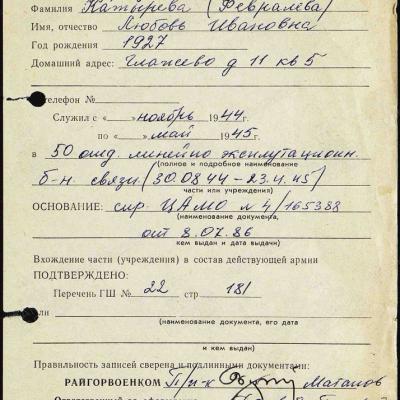 Фамилия Катырева (Февралёва)
Имя, отчество Любовь Ивановна
Год рождения 1927
Домашний адрес: Глажево д 11 кв 5
Телефон №
Служил с «  » ноябрь 1944 г.
по «  » май 1945 г.
в 50 отд. линейно эксплутационн.
(полное и подробное наименование
б-н. связи (30.08.44 – 23.4.45)
части или учреждения)
ОСНОВАНИЕ: спр. ЦАМО № 4/165388
(наименование документа,
от 8.07.86
кем выдан и дата выдачи)
Вхождение части (учреждения) в состав действующей армии
ПОДТВЕРЖДЕНО:
Перечень ГШ № 22 стр 181
или
(наименование документа, его дата
и кем выдан)
Правильность записей сверена с подлинными документами:
РАЙГОРВОЕНКОМ П/п-к Матанов